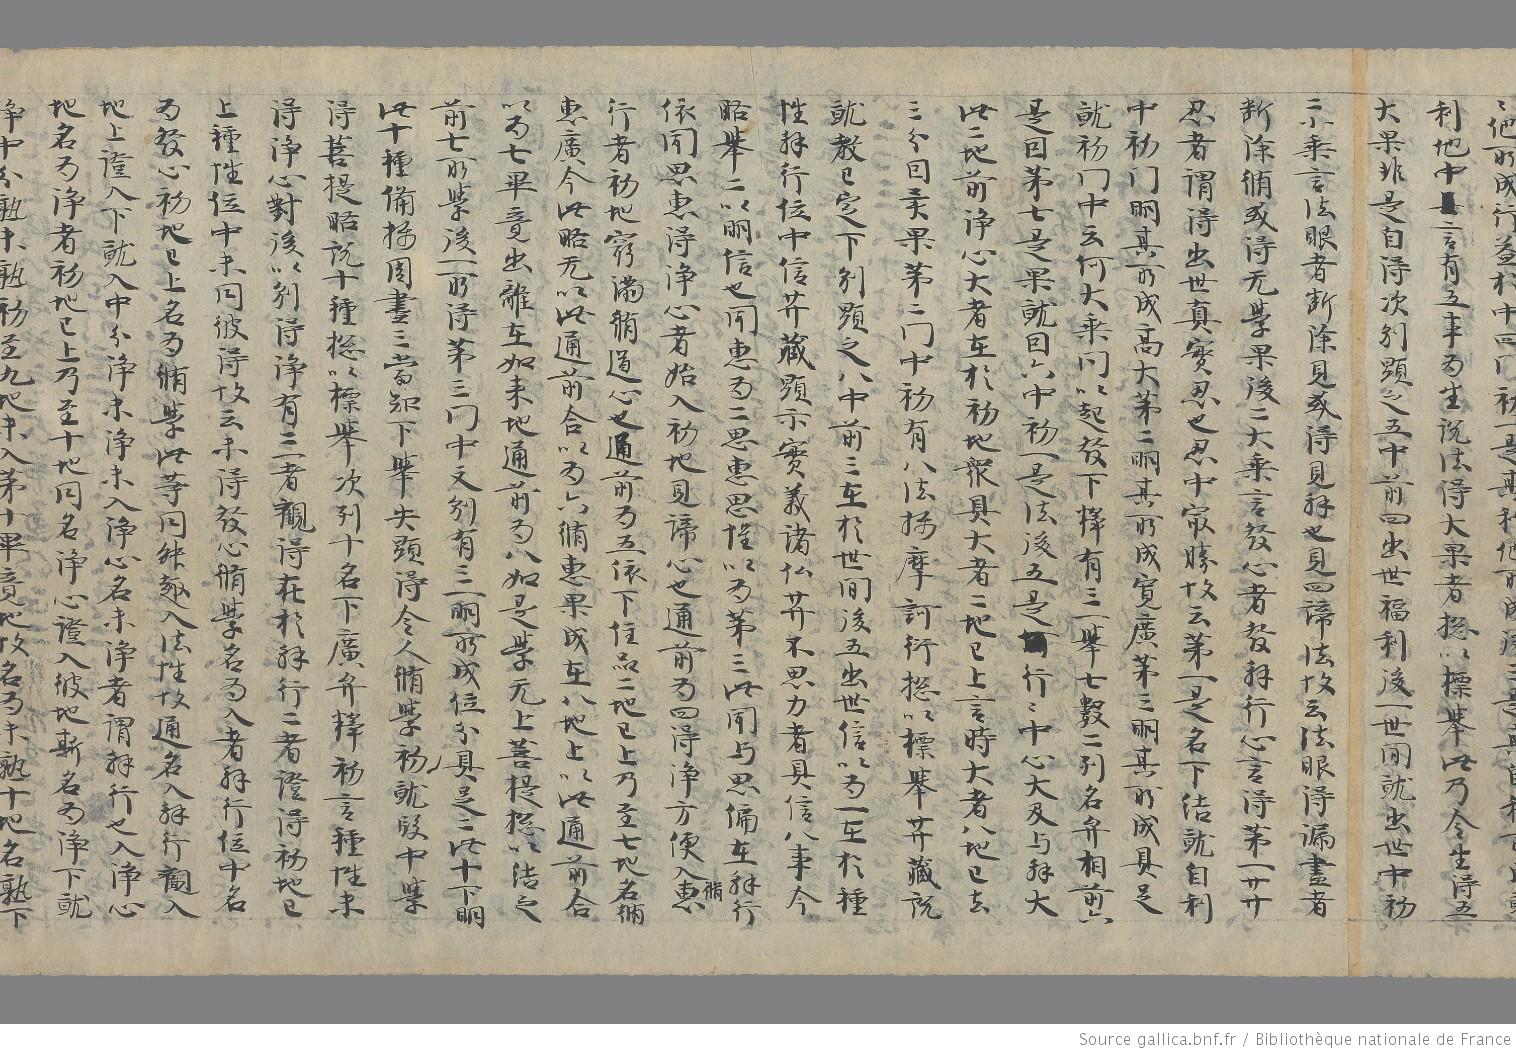 利地中言有五事为生說法得大果者捴以標舉此乃令生得五
大果非是自得次別顯之五中前四出世福利後一世間就出世中初
二小乘言法眼者斷除見或得見解也見四諦法故云法眼得漏盡者
斷除脩或得无學果後二大乘言發心者發解行心言得第一廾
忍者謂得出世真實忍也忍中冣勝故云第一是名下结就自利
中初门明其所成高大第二明其所成寬廣第三明其所成具足
就初门中云何大乘问以起發下釋有三一舉七數二列名弁相前六
是因第七是果就因六中初一是法後五是行〻中心大及与解大
此二地前淨心大者在於初地衆具大者二地已上言時大者八地已去
三分因异果第二门中初有八法捴摩訶衍捴以標舉廾藏說
就教已定下別顯之八中前三在於世间後五出世信以为一在於種
性解行位中信廾藏顯示實義諸仏廾不思力者具信八事今
略舉二以明信也闻惠为二思惠思惟以为第三此闻与思偏在解行
依闻思惠得淨心者始入初地見諦心也通前为四得淨方便入脩惠
行者初地窮滿脩道心也通前为五依下住品二地已上乃至七地名脩
惠廣今此略无以此通前合以为六脩惠果成在八地上以此通前合
以为七畢竟出離在如来地通前为八如是學无上菩提捴以结之
前七所學後一所得第三门中文別有三一明所成位分具足二此十下明
此十種備攝周盡三當知下舉失顯得令人脩學初就段中學
得菩提略說十種捴以標舉次列十名下廣弁釋初言種性未
得淨心對後以別得淨有二一者觀得在於解行二者證得初地已
上種性位中未同彼得故云未得發心脩學名为入者解行位中名
为發心初地已上名为脩學此等同能趣入法性故通名入解行觀入
地上證入下就入中分淨未淨未入淨心名未淨者謂解行也入淨心
地名为淨者初地已上乃至十地同名淨心證入彼地斬名为淨下就
淨中分熟未熟初至九地未入第十畢竟地故名为未熟十地名熟下
Source gallica.bnf.fr / Bibliothèque nationale de France